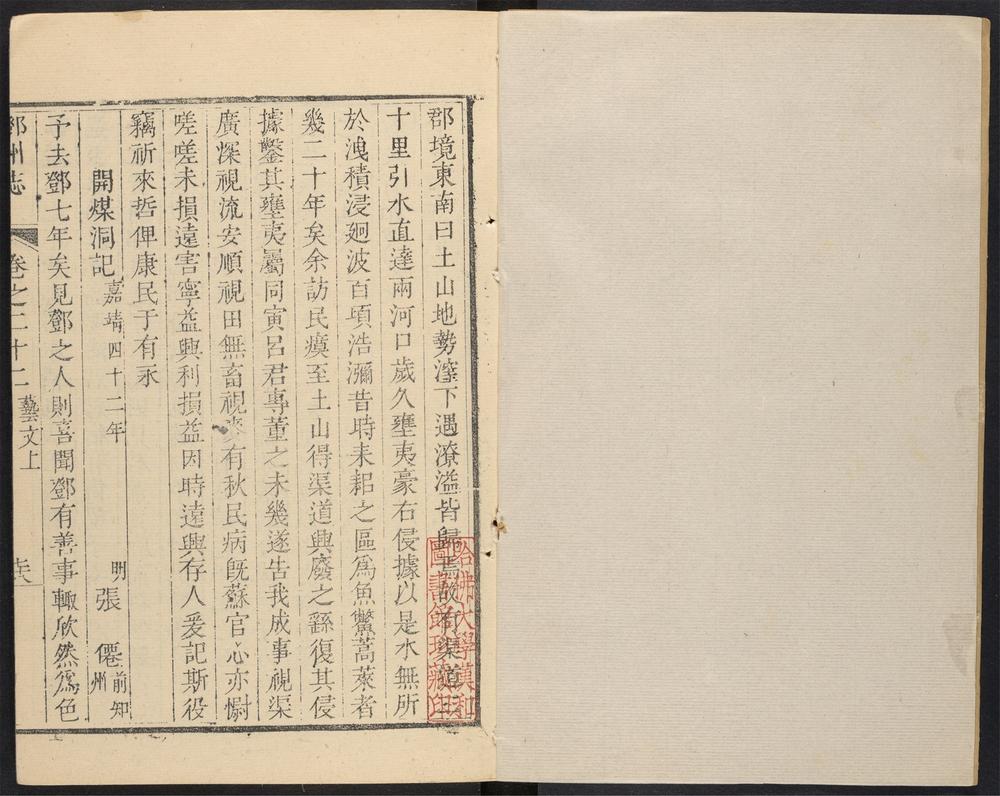 郡境東南曰土山地勢窪下遇潦溢皆歸焉故有渠道三
十里引水直達兩河口歲久壅夷豪右侵據以是水無所
於洩積浸廻波百頃浩瀰昔時耒耜之區為魚鱉蒿萊者
幾二十年矣余訪民瘼至土山得渠道興廢之繇復其侵
據鑿其壅夷屬同寅呂君專董之未幾遂告我成事視渠
廣深視流安順視田無畜視麥有秋民病旣蘇官心亦慰
嗟嗟未損遠害寧益興利損益因時遠興存人爰記斯役
竊祈來哲俾康民于有永
開煤洞記 嘉靖四十二年 明 張僊 前知州
予去鄧七年矣見鄧之人則喜聞鄧有善事輙欣然為色
鄧州志 卷之二十二 藝文上
哈佛大學漢和
圖書館珍藏印